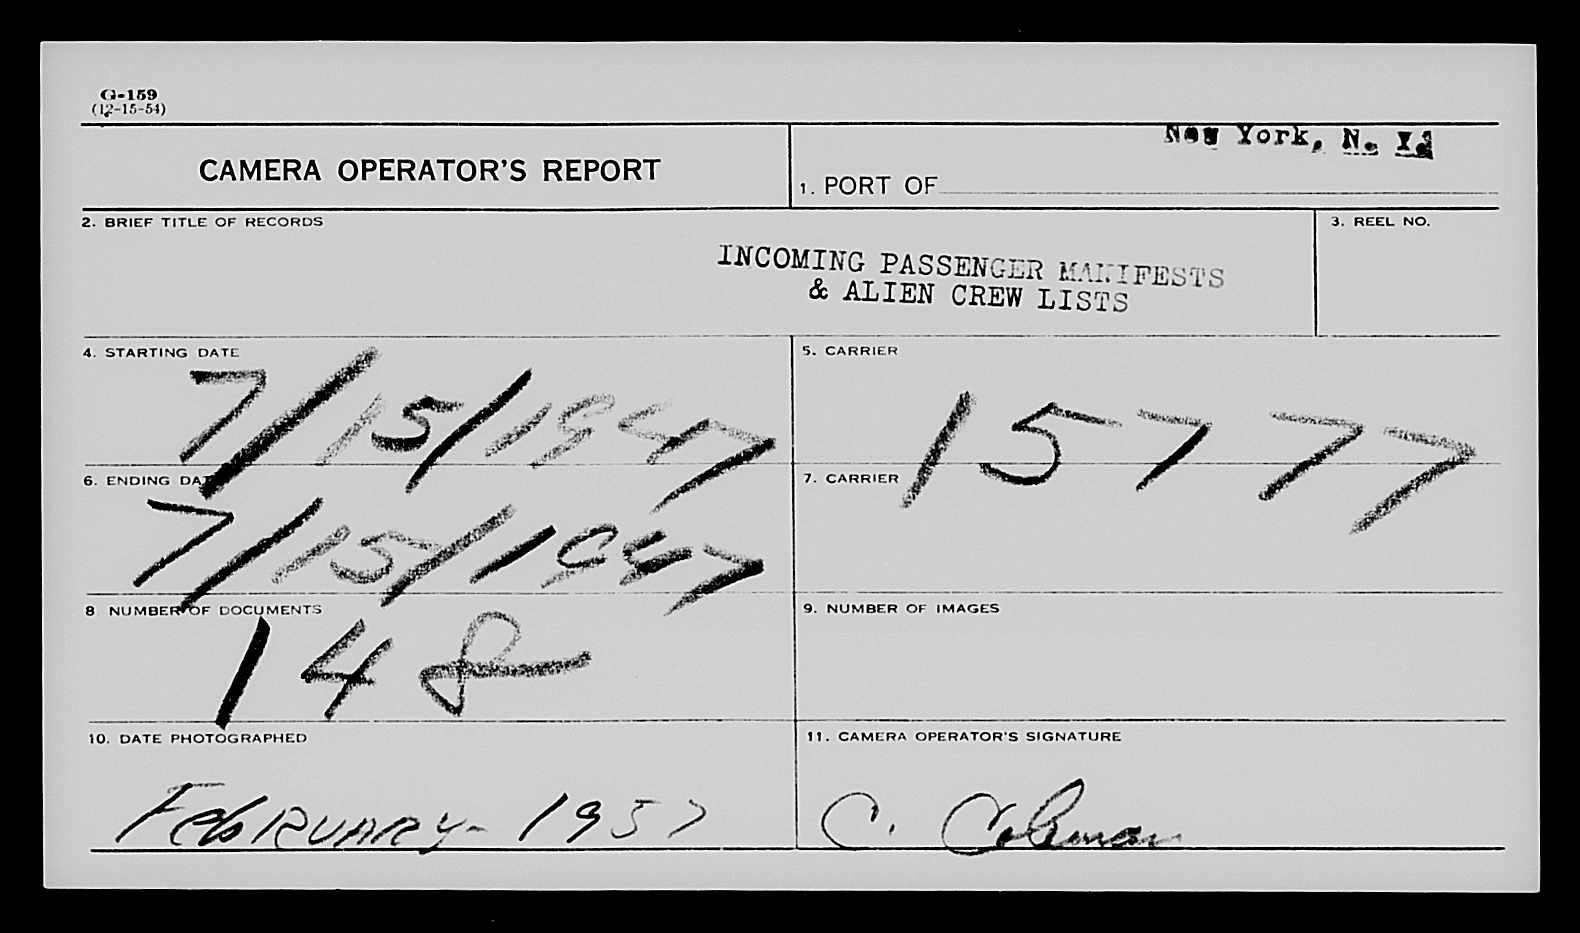 G-159
(12-15-54)
New York, N. Y.
CAMERA OPERATOR'S REPORT
1. PORT OF
2. BRIEF TITLE OF RECORDS
3. REEL NO.
INCOMING PASSENGER MANIFESTS
& ALIEN CREW LISTS
4. STARTING DATE
5. CARRIER
7/15/1947
15777
6. ENDING DATE
7. CARRIER
7/15/1947
8 NUMBER OF DOCUMENTS
9. NUMBER OF IMAGES
148
10. DATE PHOTOGRAPHED
11. CAMERA OPERATOR'S SIGNATURE
February - 1957
C. Coleman